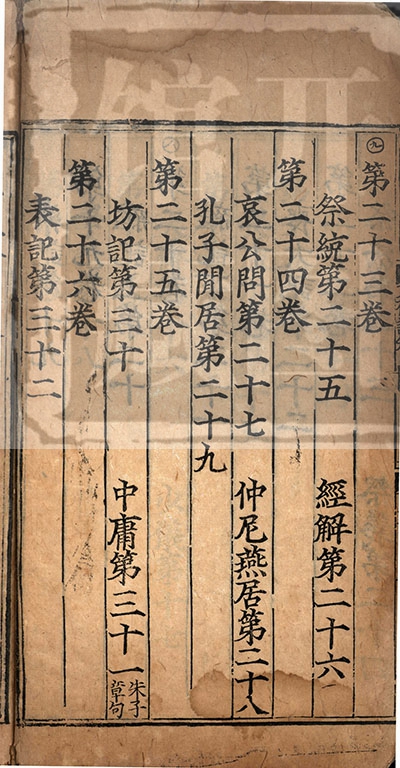 第二十三卷
祭統第二十五 經解第二十六
第二十四卷
哀公問第二十七 仲尼燕居第二十八
孔子閒居第二十九
第二十五卷
坊記第三十 中庸第三十一 朱子章句
第二十六卷
表記第三十二